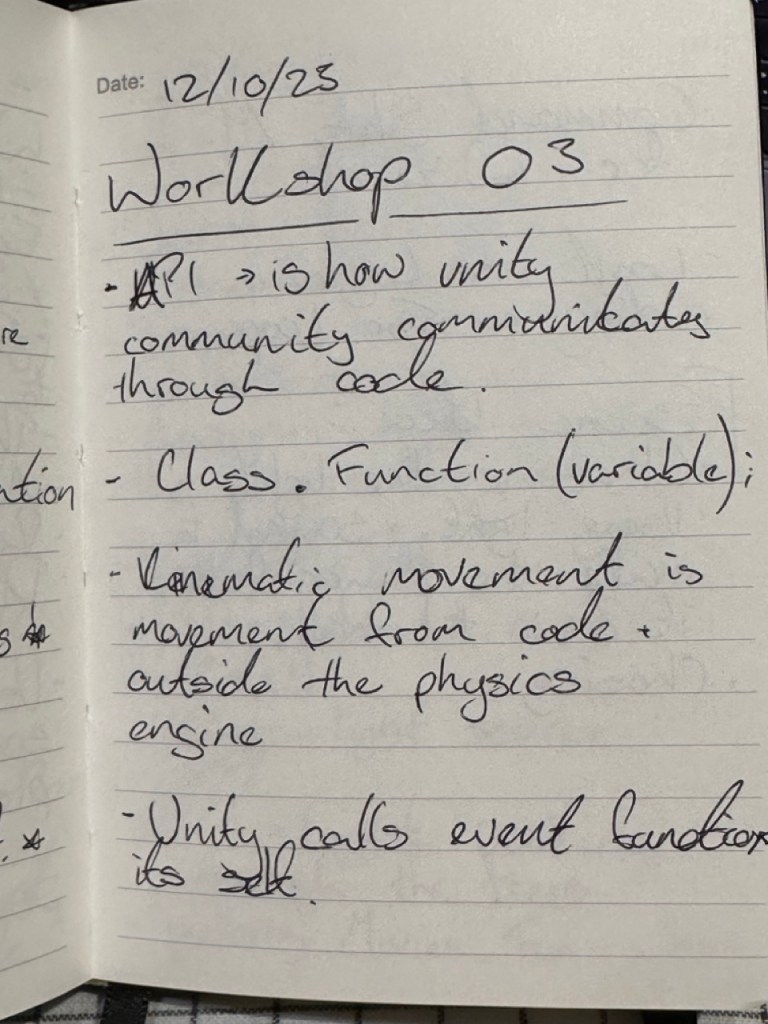 Date: 12/10/23
Workshop 03
- API → is how unity
community communicates
through code.
- Class. Function (variable);
- Kinematic movement is
movement from code +
outside the physics
engine
- Unity calls event function
its self.
re
ation